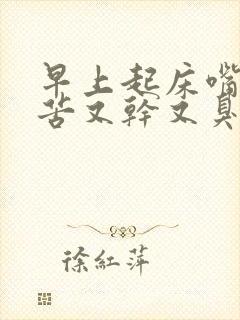 早上起床嘴
苦又幹又臭
徐紅萍